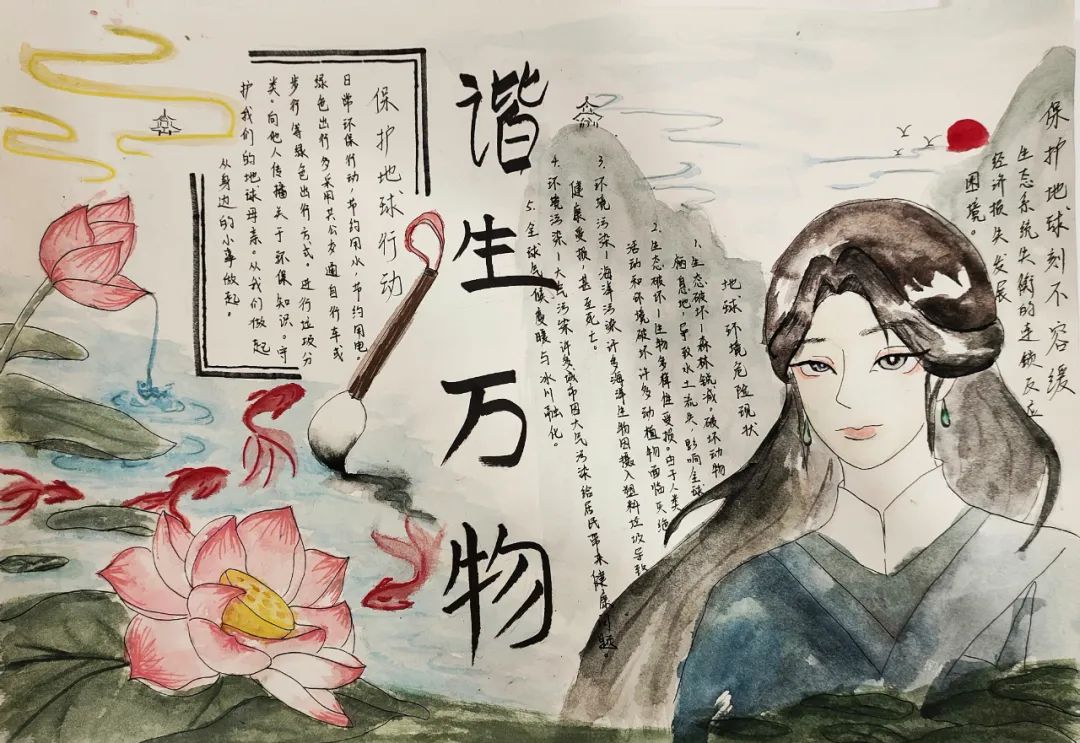 保护地球刻不容缓
生态系统失衡的连锁反应
经济损失发展
困境。
地球环境危险现状
1.生态破坏—森林锐减。破坏动物
栖息地,导致水土流失,影响全球
2.生态破坏—生物多样性受损。由于人类
活动和环境破坏许多动植物面临灭绝
3.环境污染—海洋污染许多海洋生物因摄入塑料垃圾导致
健康受损,甚至死亡。
4.环境污染—大气污染许多城市因大气污染给居民带来健康问题。
5.全球气候变暖与冰川融化。
谐生万物
保护地球行动
日常环保行动,节约用水,节约用电
绿色出行多采用共公交通自行车或
步行等绿色出行方式。进行垃圾分
类。向他人传播关于环保知识。守
护我们的地球母亲。从我们做起
从身边的小事做起。